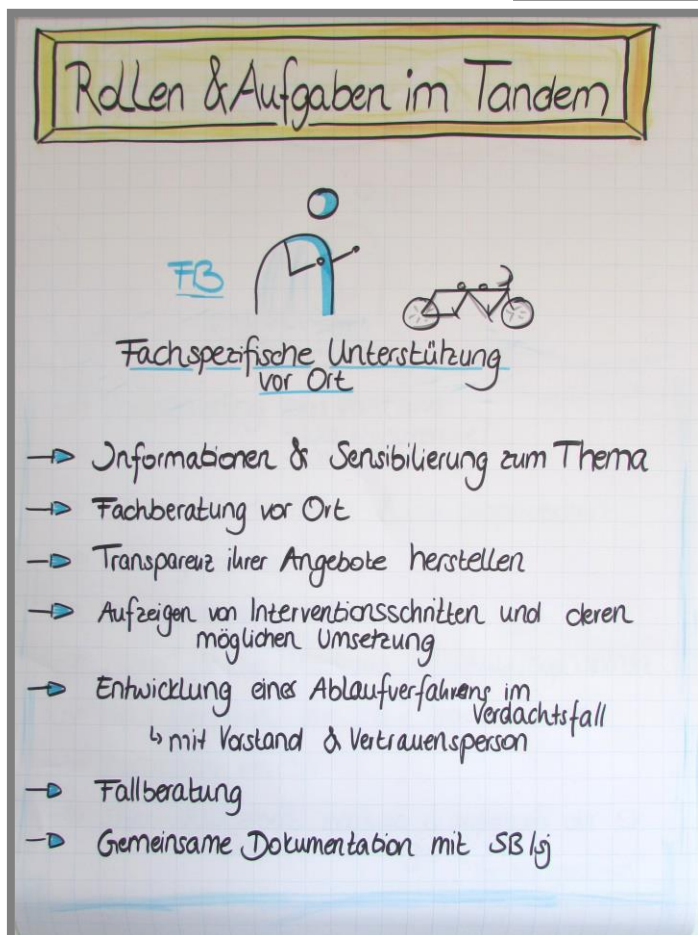 Rollen & Aufgaben im Tandem
FB
Fachspezifische Unterstützung
vor Ort
Informationen & Sensibilierung zum Thema
Fachberatung vor Ort
Transparenz ihrer Angebote herstellen
Aufzeigen von Interventionsschritten und deren
möglichen Umsetzung
Entwicklung eines Ablaufverfahrens im
Verdachtsfall
↳ mit Vorstand & Vertrauensperson
Fallberatung
Gemeinsame Dokumentation mit SB/sj